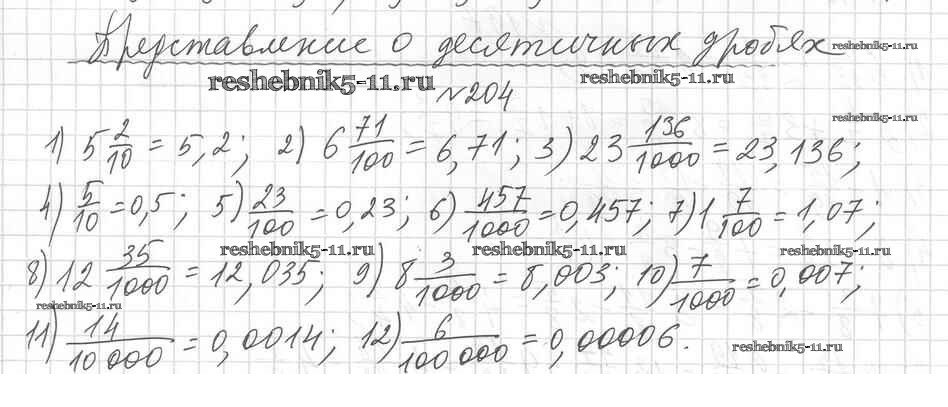 Представление о десятичных дробях reshebnik5-11.ru
reshebnik5-11.ru reshebnik5-11.ru
№204 reshebnik5-11.ru
1) 5 2/10 = 5,2; 2) 6 71/100 = 6,71; 3) 23 136/1000 = 23,136;
4) 5/10 = 0,5; 5) 23/100 = 0,23; 6) 457/1000 = 0,457; 7) 1 7/100 = 1,07;
reshebnik5-11.ru reshebnik5-11.ru reshebnik5-11.ru
8) 12 35/1000 = 12,035; 9) 8 3/1000 = 8,003; 10) 7/1000 = 0,007;
reshebnik5-11.ru
11) 14/10 000 = 0,0014; 12) 6/100 000 = 0,00006.
reshebnik5-11.ru